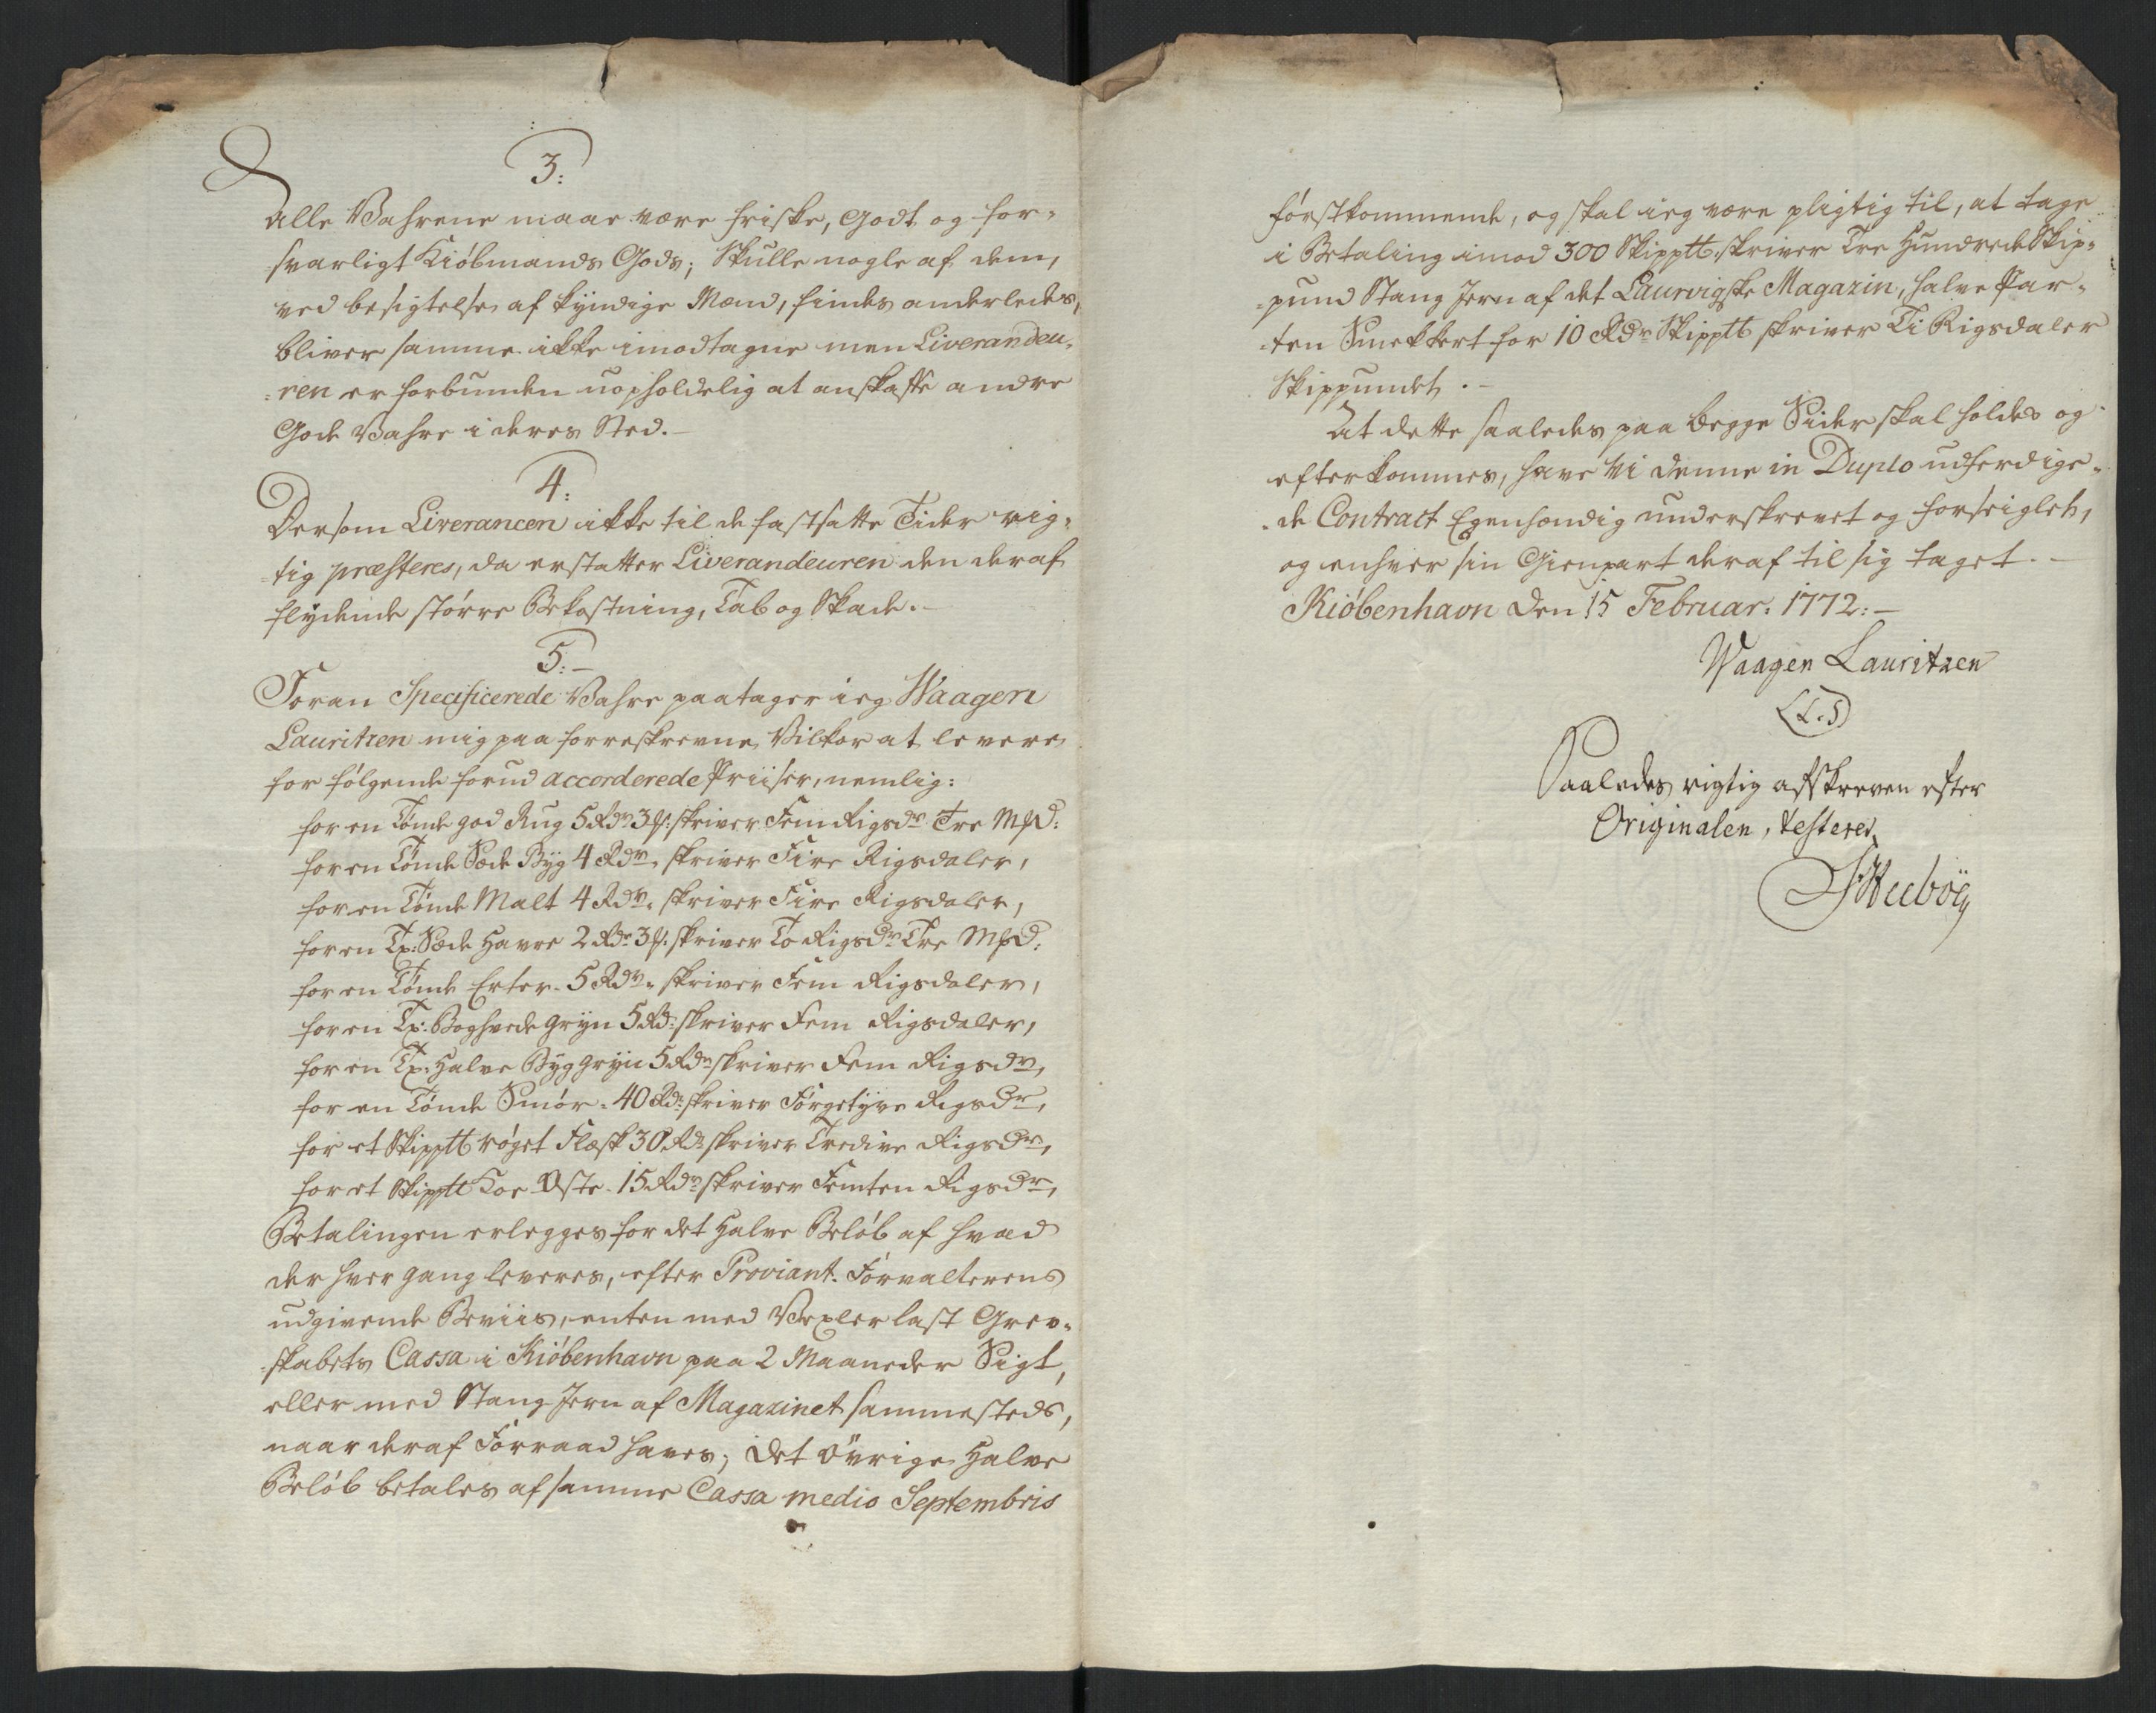 3:
Alle Vahrene maae være friske, Godt og for-
svarligt Kiøbmands Gods; Skulle nogle af dem,
ved besigtelse af kyndige Mænd, findes anderledes,
bliver samme ikke imodtagne men Liverandeu-
=ren er forbunden uopholdelig at anskaffe andre
Gode Vahre i deres Sted.-
4:
Dersom Liverancen ikke til de fastsatte Tider rig-
=tig præsteres, da erstatter Liverandeuren den deraf
flydende større Bekostning, Tab og Skade.-
5:-
Foran Specificerede Vahre paatager ieg Waagen
Lauritzen mig paa forreskrevne Vilkor at levere
for følgende forud accorderede Priiser, nemlig:
for en Tønde god Rug 5 Rdr 3 ß: skriver Fem Rigsdr Tre Mkd:
for en Tønde Sæde Byg 4 Rdr, skriver Fire Rigsdaler,
for en Tønde Malt 4 Rdr, skriver Fire Rigsdaler,
for en Tr: Sæde Havre 2 Rdr 3 ß: skriver To Rigsdr Tre Mkd:
for en Tønde Erter - 5 Rdr, skriver Fem Rigsdaler,
for en Tr: Boghvede Gryn 5 Rd: skriver Fem Rigsdaler,
for en Tr: Halve Byggryn 5 Rdr skriver Fem Rigsdr,
for en Tønde Smør - 40 Rd: skriver Førgetyve Rigsdr,
for et Skippt røget Flæsk 30 Rd skriver Tredive Rigsdr,
for et Skippt Koe Oste - 15 Rdr skriver Femten Rigsdr,
Betalingen erlegges for det Halve Beløb af hvad
der hver gang leveres, efter Proviant-Forvalterens
udgivende Beviis, enten med Vexler last Grev-
=skabets Cassa i Kiøbenhavn paa 2 Maaneder Sigt,
eller med Stang Jern af Magazinet sammesteds,
naar deraf Forraad haves; Det øvrige Halve
Beløb betales af samme Cassa medio Septembris
førstkommende, og skal ieg være pligtig til, at tage
i Betaling imod 300 Skippt: skriver Tre Hundrede Skip-
=pund Stang Jern af det Laurvigske Magazin, halve Par-
=ten Smekkert for 10 Rdr Skippt skriver Ti Rigsdaler
Skippundet.-
At dette saaledes paa begge Sider skal holdes og
efterkommes, have Vi denne in Duplo udferdige-
=de Contract Egenhændig underskrevet og forseiglet,
og enhver sin Gienpart deraf til sig taget.-
Kiøbenhavn den 15 Februar: 1772:-
Waagen Lauritzen
(L.S)
Saaledes rigtig afskreven efter
Originalen, testerer